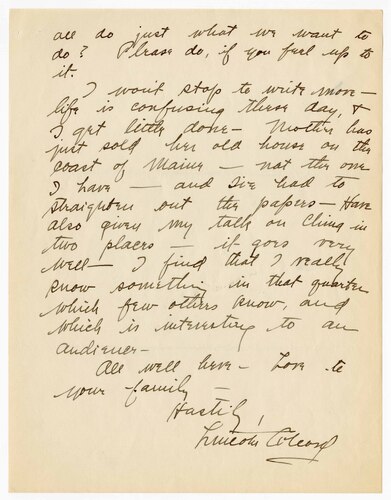 all do just what we want to
do? Please do, if you feel up to
it.
I won't stop to write more —
life is confusing these days, &
I get little done — Mother has
just sold her old house on the
coast of Maine — not the one
I have — and I've had to
straighten out the papers — Have
also given my talk on China in
two places — it goes very
well — I find that I really
know something in that quarter
which few others know, and
which is interesting to an
audience —
All well here — Love to
your family —
Hastily,
Lincoln Colcord